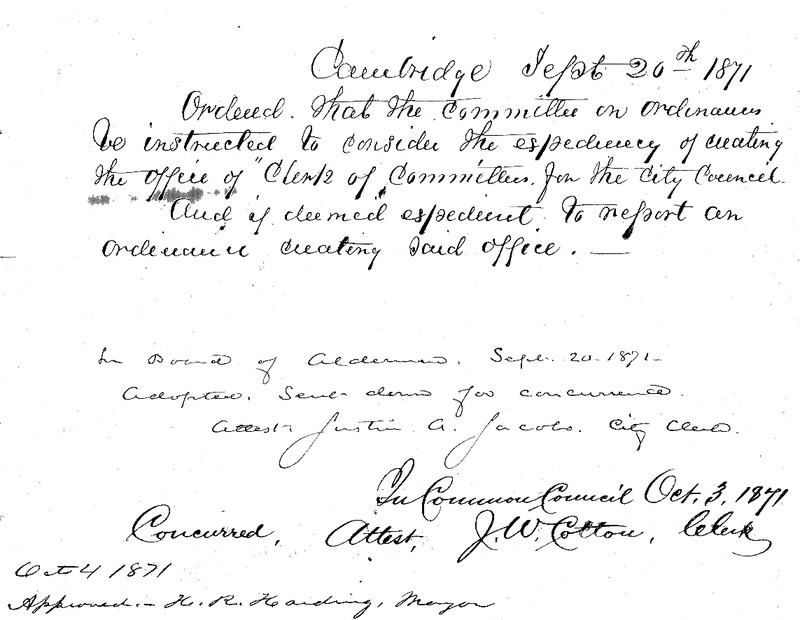 Cambridge Sept 20th 1871
Ordered. That the Committee on Ordinances
be instructed to consider the expediency of creating
the office of "Clerk of Committees. for the City Council.
And if deemed expedient to report an
ordinance creating said office. —
In Board of Aldermen. Sept. 20. 1871.
Adopted. Sent down for concurrence.
Attest. Justin A. Jacobs. City Clerk.
In Common Council Oct. 3, 1871
Concurred, Attest, J. W. Cotton, Clerk
Oct 4 1871
Approved.- H. R. Harding, Mayor